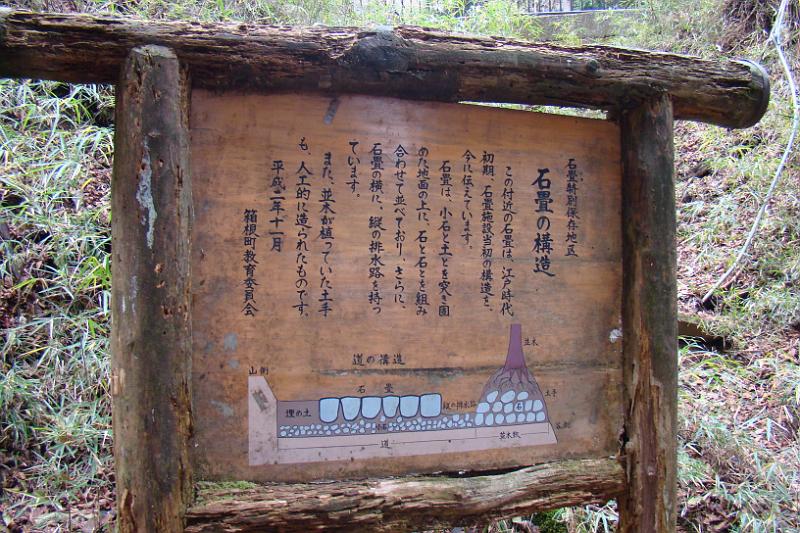 石畳特別保存地区
石畳の構造
この付近の石畳は、江戸時代
初期、石畳施設当初の構造を、
今に伝えています。
石畳は、小石と土とを突き固
めた地面の上に、石と石とを組み
合わせて並べており、さらに、
石畳の横に、縦の排水路を持っ
ています。
また、並木が植っていた土手
も、人工的に造られたものです。
平成二年十一月
箱根町教育委員会
道の構造
山側
石畳
埋め土
小石
道
縦の排水路
並木
土手
石
並木敷
谷側